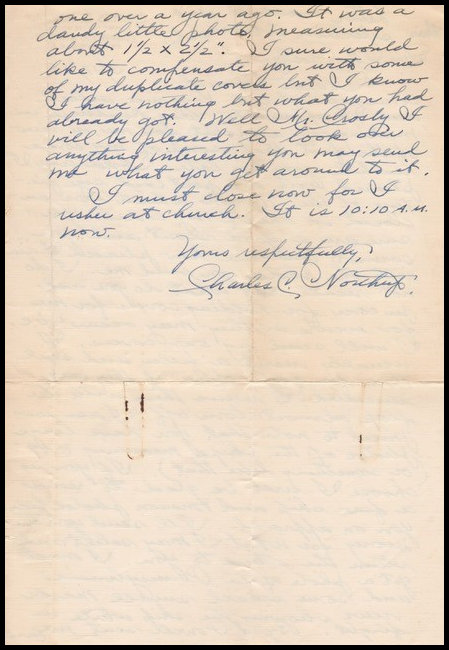 one over a year ago. It was a
dandy little photo, measuring
about 1 1/2 x 2 1/2". I sure would
like to compensate you with some
of my duplicate covers but I know
I have nothing but what you had
already got. Well Mr. Crosby I
will be pleased to look over
anything interesting you may send
me what you get around to it.
I must close now for I
usher at church. It is 10:10 A.M.
now.
Yours respectfully,
Charles C. Northup.